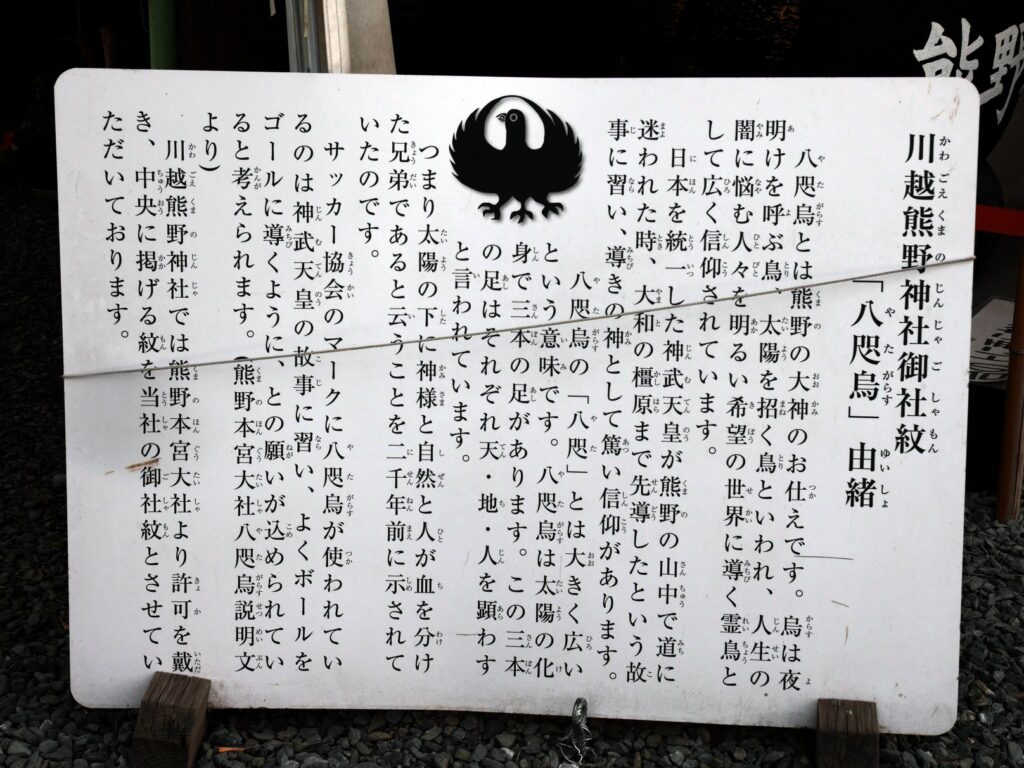 川越熊野神社御社紋
「八咫烏」由緒
八咫烏とは熊野の大神のお仕えです。烏は夜
明けを呼ぶ鳥、太陽を招く鳥といわれ、人生の
闇に悩む人々を明るい希望の世界に導く霊鳥と
して広く信仰されています。
日本を統一した神武天皇が熊野の山中で道に
迷われた時、大和の橿原まで先導したという故
事に習い、導きの神として篤い信仰があります。
八咫烏の「八咫」とは大きく広い
という意味です。八咫烏は太陽の化
身で三本の足があります。この三本
の足はそれぞれ天・地・人を顕わす
と言われています。
つまり太陽の下に神様と自然と人が血を分け
た兄弟であると云うことを二千年前に示されて
いたのです。
サッカー協会のマークに八咫烏が使われてい
るのは神武天皇の故事に習い、よくボールを
ゴールに導くように、との願いが込められてい
ると考えられます。(熊野本宮大社八咫烏説明文
より)
川越熊野神社では熊野本宮大社より許可を戴
き、中央に掲げる紋を当社の御社紋とさせてい
ただいております。
熊野